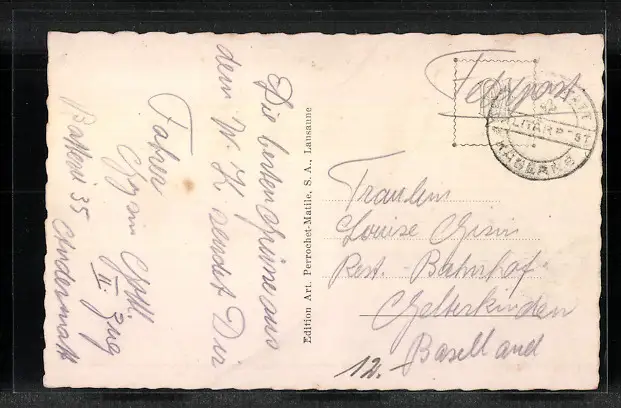 Die besten Grüsse aus
dem W. K. sendet Dir
Fahrer
Gysin Gottl.
II. Zug
Batterie 35 Andermatt
Edition Art. Perrochet-Matile, S. A., Lausanne
Feldpost
Fräulein
Louise Gisin
Rest. Bahnhof
Gelterkinden
Baselland
12.-